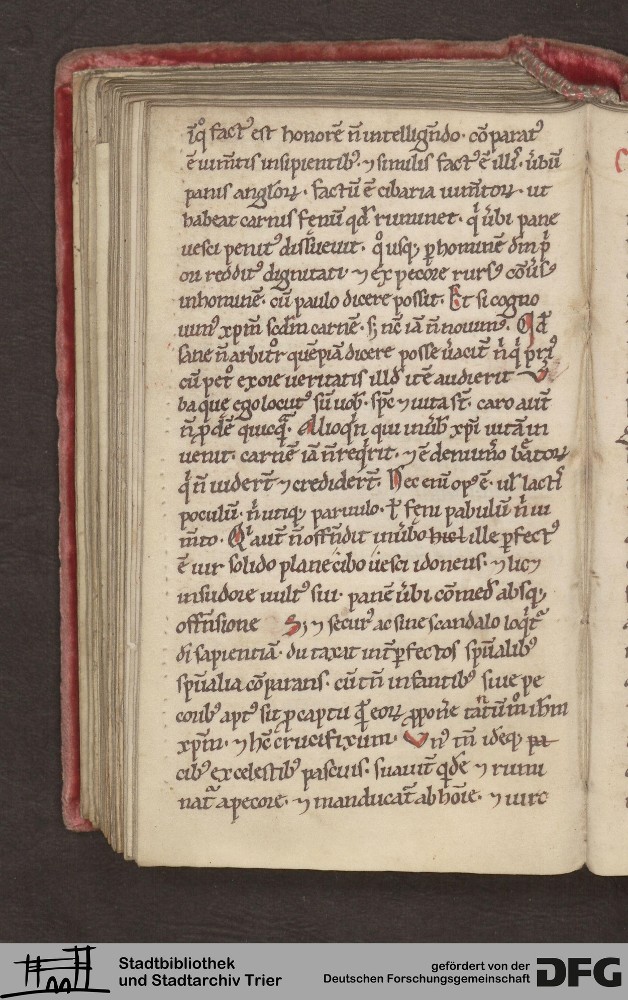 iqͦ factꝰ est honorē n̄ intelligēdo· cōparatꝰ
ē ium̄tis insipientibꝰ· ⁊ similis factꝰ ē illi᷒· úbū
panis anglꝝ· factū ē cibaria ium̄torꝝ· ut
habeat carnis fenū qd̓ ruminet· qͥ úbi pane
uesci penitꝰ dissueuit· qͦusqꝫ ꝑ hominē dm̄ pͥ
ori redditꝰ dignitati ⁊ ex pecore rursꝰ cōúsꝰ
in hominē· cū paulo dicere possit· Et si cogno
uimꝰ xpm̄ scdm̄ carnē· sꝫ nc̄ iā n̄ nouimꝰ· Qd̓
sane n̄ arbitror quēpiā dicere posse úacit̄ nͥ qͥ priꝰ
cū petͦ ex ore ueritatis illd̓ itē audierit Ú
ba que ego locutꝰ sū uob̄· sp̄c ⁊ uita st̄· caro aut̄
n̄ ꝓdē quicqͣ̄· Alioqͥn qui in úb̄ xpi uitā in
uenit· carnē iā n̄ reqͥrit· ⁊ ē de num̄o bātorꝝ
qͥ n̄ uidert̄ ⁊ credidert̄· Nec enī opꝰ ē· ul̓ lactiᷤ
poculū· nͥ utiqꝫ paruulo· ł feni pabulū nͥ iu
m̄to· Qͥ aut̄ n̄ offn̄dit in úbo ille ꝑfectꝰ
ē uir solido plane cibo uesci idoneus· ⁊ licꝫ
in sudore uultꝰ sui· panē úbi cōmed̓ absqꝫ
offn̄sione Sꝫ ⁊ securꝰ ac sine scandalo loqͥt̄
di sapientiā· du taxat int̓ ꝑfectos sp̄ualibꝰ
sp̄ualia cōparans· cū tn̄ infantibꝰ siue pe
coribꝰ aptꝰ sit ꝓ captu qͥd̄ eorꝝ ꝓpon̓e tātū mͦ ihm
xpm̄· ⁊ hc̄ crucifixum· Unꝰ tn̄ idēqꝫ
cibꝰ ex celestibꝰ pascuis· suauit̄ qͥde ⁊ rumi
natͬ a pecore· ⁊ manducat̄ ab hōie· ⁊ uiro
Stadtbibliothek
und Stadtarchiv Trier
gefördert von der
Deutschen Forschungsgemeinschaft
DFG